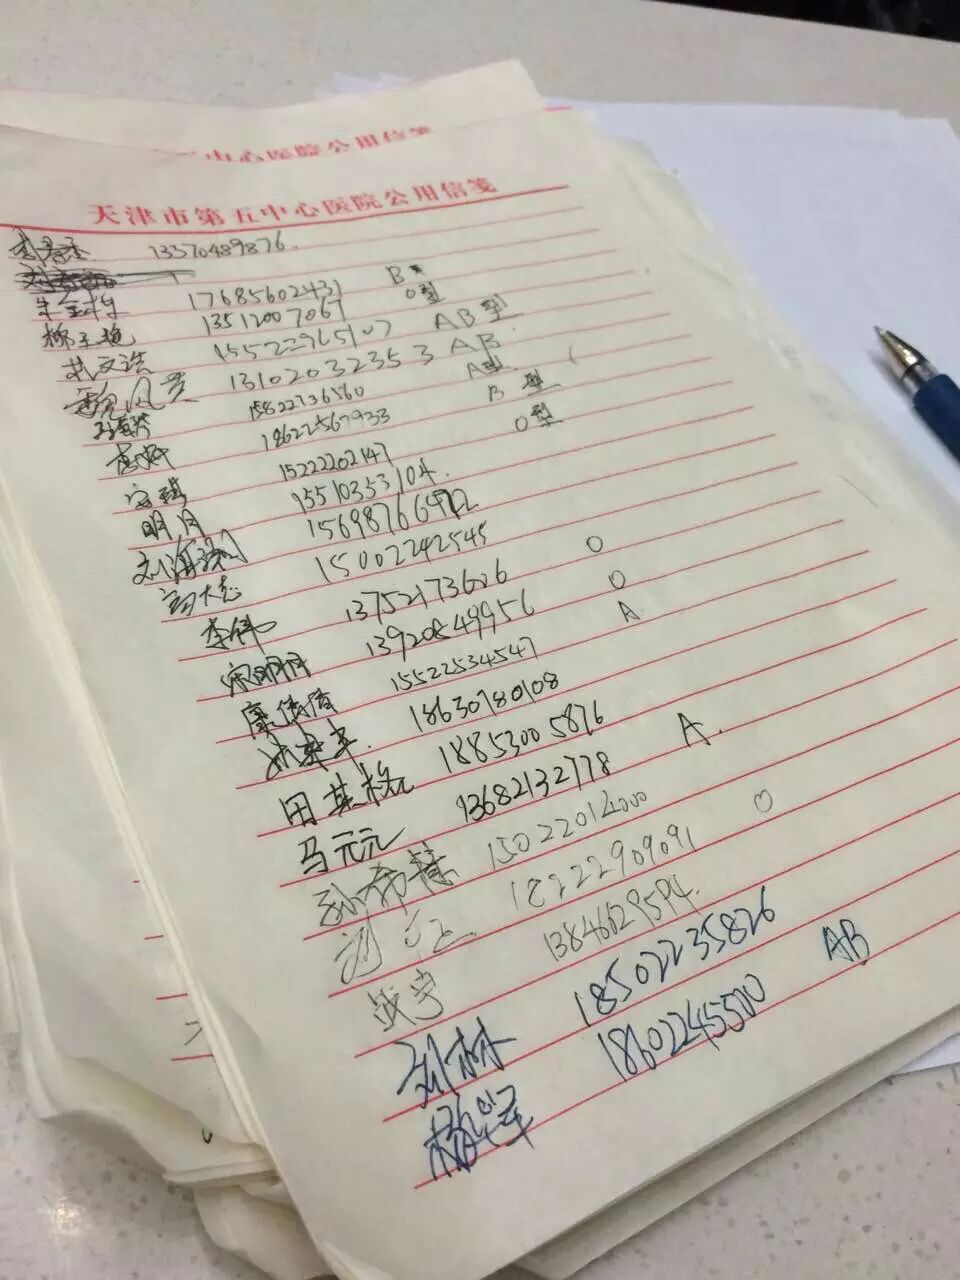 中心医院公用信笺
天津市第五中心医院公用信笺
13370489876.
17685602431 B
柳玉艳 13512007067 O型
武文浩 15522965107 AB型
魏凤芝 13102032353 AB
15822736560 A型
李妍 18622567933 B型
安琪 15222202147 O型
明月 15510353104.
刘海 15698766972
高大志 15002242545
李伟 13752173606 O
宋明月 13920849956 O
廉 15522534547 A
18630780108
田其格 18853005876
马元元 13682132778 A.
孙希慧 15022014000
刘 18222909091 O
战宇 13846029594.
孙林 18502235826
杨军 18602245500 AB